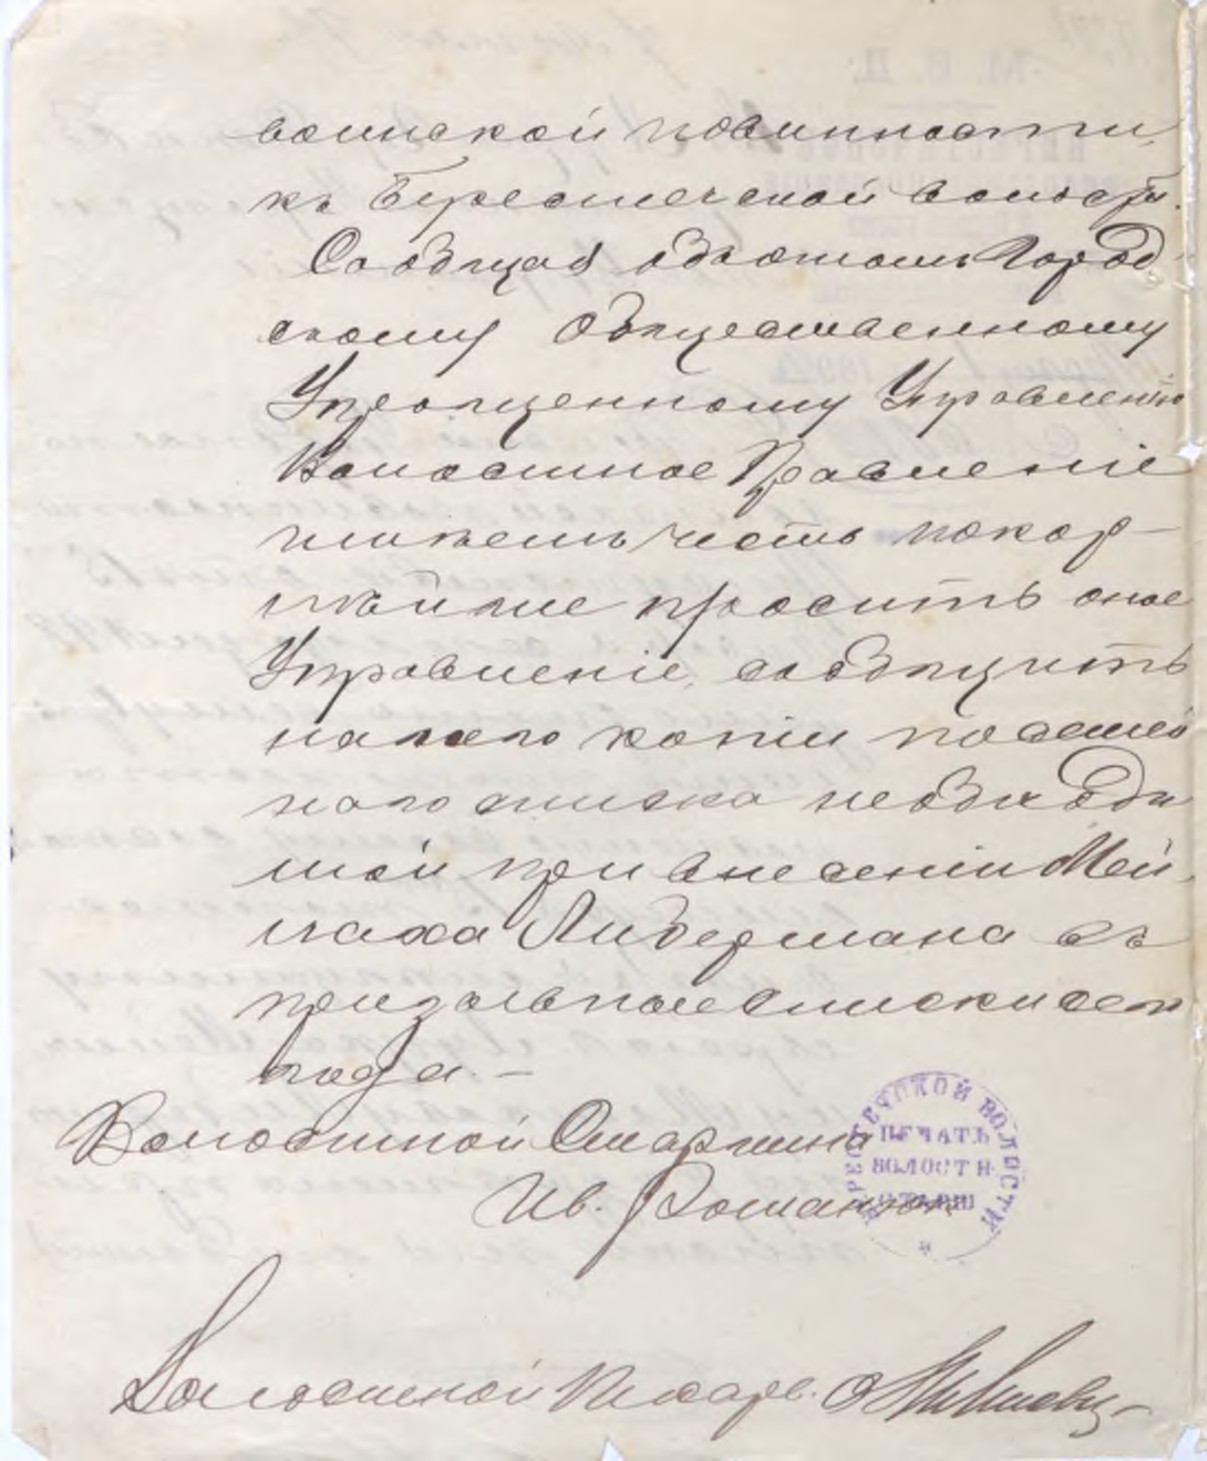 воинской повинности
къ Берестечской волости.
Сообщая объ этомъ Город
скому Общественному
Упрощенному Управленію
Волостное Правленіе
имѣетъ честь покор-
нѣйше просить оное
Управленіе, сообщить
копіи посемей
наго списка необходи
мой при внесеніи Мей
лаха Лидермана въ
призывные списки сего
года.-
Волостной Старшина
Ив. Романюк
Волостной Писарь
БЕРЕСТЕЧСКОЙ ВОЛОСТИ
ПЕЧАТЬ
ВОЛОСТН
СТАРШ